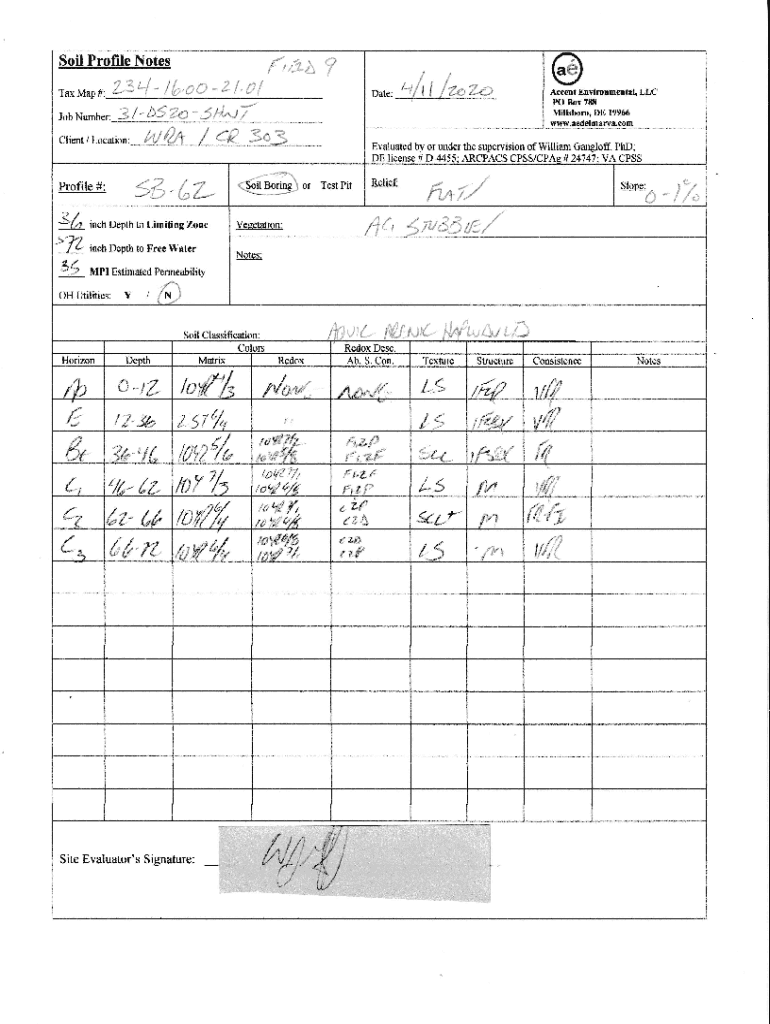 Soil Profile Notes FIELD 9
Tax Map #: 234-16.00-21.01
Job Number: 31-DS20-SHWT
Client / Location: WRA / CR 303
Date: 4/11/2020
aé
Accent Environmental, LLC
PO Box 788
Millsboro, DE 19966
www.aedelmarva.com
Evaluated by or under the supervision of William Gangloff, PhD;
DE license # D-4455; ARCPACS CPSS/CPAg # 24747; VA CPSS
Profile #: SB-62 Soil Boring or Test Pit
Relief: FLAT Slope: 0-1%
36 inch Depth to Limiting Zone
>72 inch Depth to Free Water
35 MPI Estimated Permeability
OH Utilities: Y / N
Vegetation: AG STUBBLE
Notes:
Soil Classification: AQUIC ARENIC HAPLUDULTS
Colors Redox Desc.
Horizon Depth Matrix Redox Ab. S. Con. Texture Structure Consistence Notes
Ap 0-12 10YR 4/3 NONE NONE LS
E 12-36 2.5Y 6/4 LS
Bt 36-46 10YR 5/6 10YR 7/2 F12P SCL
10YR 5/8 F12F
C1 46-62 10Y 7/3 10YR 7/1 F12F LS M
10YR 6/8 F12P
C2 62-66 10YR 6/4 C2P SCL+ M
C2D
C3 66-72 10YR 10YR 6/8 C2D LS M
10YR 7/1
Site Evaluator's Signature: